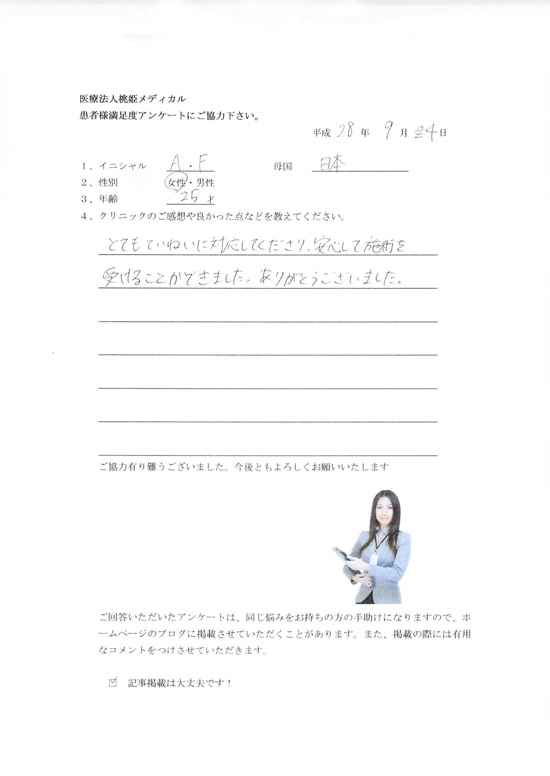 医療法人桃姫メディカル
患者様満足度アンケートにご協力下さい。
平成 28 年 9 月 24 日
1、イニシャル A・F 母国 日本
2、性別 女性・男性
3、年齢 25才
4、クリニックのご感想や良かった点などを教えてください。
とてもていねいに対応してくださり、安心して施術を
受けることができました。ありがとうございました。
ご協力有り難うございました。今後ともよろしくお願いいたします
ご回答いただいたアンケートは、同じ悩みをお持ちの方の手助けになりますので、ホ
ームページのブログに掲載させていただくことがあります。また、掲載の際には有用
なコメントをつけさせていただきます。
☑ 記事掲載は大丈夫です！